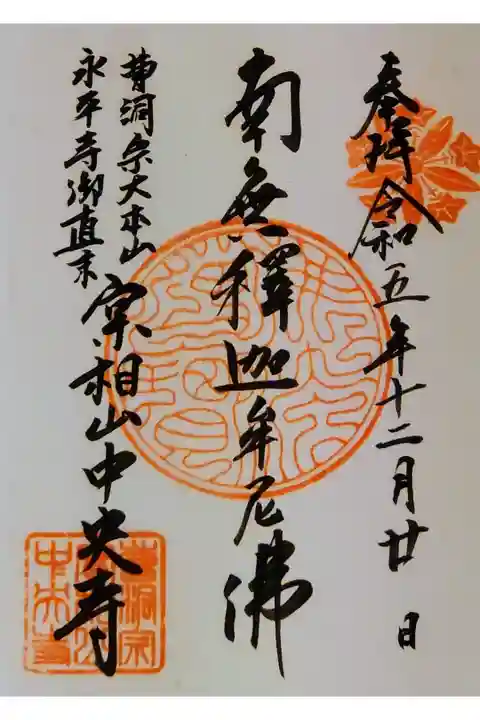 奉拝 令和五年十二月廿日
南無釋迦牟尼佛
曹洞宗大本山
永平寺御直末
実相山中央寺
曹洞宗
中央寺